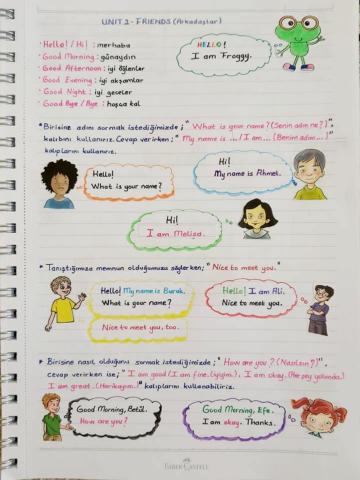 UNIT 2 - FRIENDS (Arkadaşlar)
* Hello! / Hi! : merhaba
* Good Morning : günaydın
* Good Afternoon : iyi öğlenler
* Good Evening : iyi akşamlar
* Good Night : iyi geceler
* Good Bye / Bye : hoşça kal
HELLO!
I am Froggy.
* Birisine adını sormak istediğimizde; "What is your name? (Senin adın ne?)"
kalıbını kullanırız. Cevap verirken; "My name is ... / I am ... (Benim adım...)"
kalıplarını kullanırız.
Hello!
What is your name?
Hi!
My name is Ahmet.
Hi!
I am Melisa.
* Tanıştığımıza memnun olduğumuzu söylerken; "Nice to meet you."
Hello! My name is Burak.
What is your name?
Nice to meet you, too.
Hello! I am Ali.
Nice to meet you.
* Birisine nasıl olduğunu sormak istediğimizde; "How are you? (Nasılsın?)",
cevap verirken ise; "I am good / I am fine. (iyiyim.), I am okay. (Her şey yolunda.)
I am great. (Harikayım.)" kalıplarını kullanabiliriz.
Good Morning, Betül.
How are you?
Good Morning, Efe.
I am okay. Thanks.
FABER-CASTELL